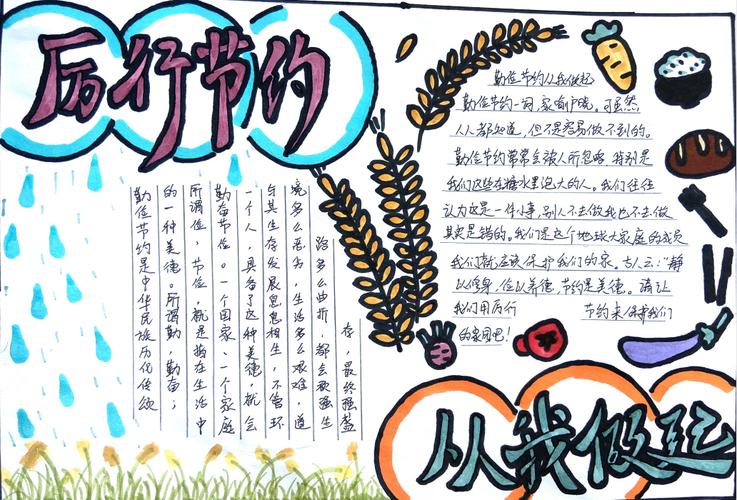 厉行节约
勤俭节约是中华民族历代传颂
的一种美德。所谓勤,勤奋;
所谓俭,节俭,就是指在生活中
勤奋节俭。一个国家、一个家庭
一个人,具备了这种美德,就会
与其生存发展息息相生,不管环
境多么恶劣,生活多么艰难,道
路多么曲折,都会强生
存,最终强盛
勤俭节约从我做起
勤俭节约一词,家喻户晓。可虽然
人人都知道,但不是容易做不到的。
勤俭节约常常会被人所忽略,特别是
我们这些在糖水里泡大的人。我们往往
认为这是一件小事,别人不去做我也不去做
其实是错的。我们是这个地球大家庭的成员
我们就应该保护我们的家。古人云:“静
以修身,俭以养德,节约是美德。请让
我们用厉行 节约来保护我们
的家园吧!
从我做起